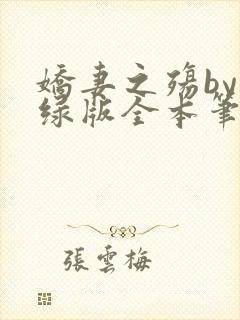 嬌妻之殤by
绿版全本筆
張雲梅